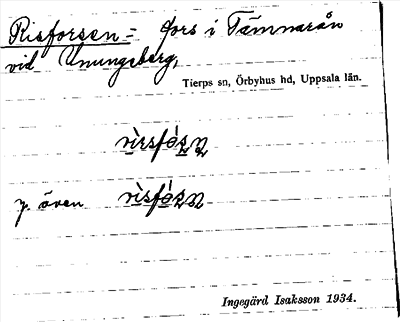 Risforsen = fors i Tämnarån
vid Unungsberg,
Tierps sn, Örbyhus hd, Uppsala län.
även
Ingegärd Isaksson 1934.